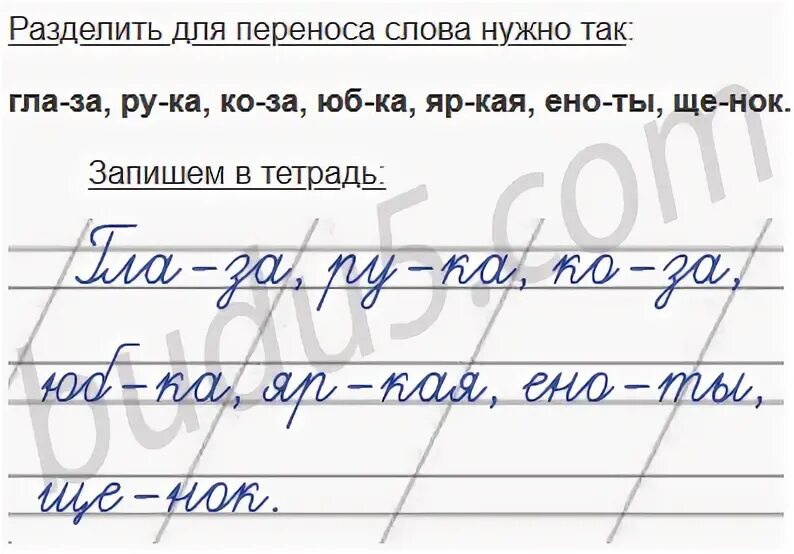 Разделить для переноса слова нужно так:
гла-за, ру-ка, ко-за, юб-ка, яр-кая, ено-ты, ще-нок.
Запишем в тетрадь:
Гла-за, ру-ка, ко-за,
юб-ка, яр-кая, ено-ты,
ще-нок.
budu5.com